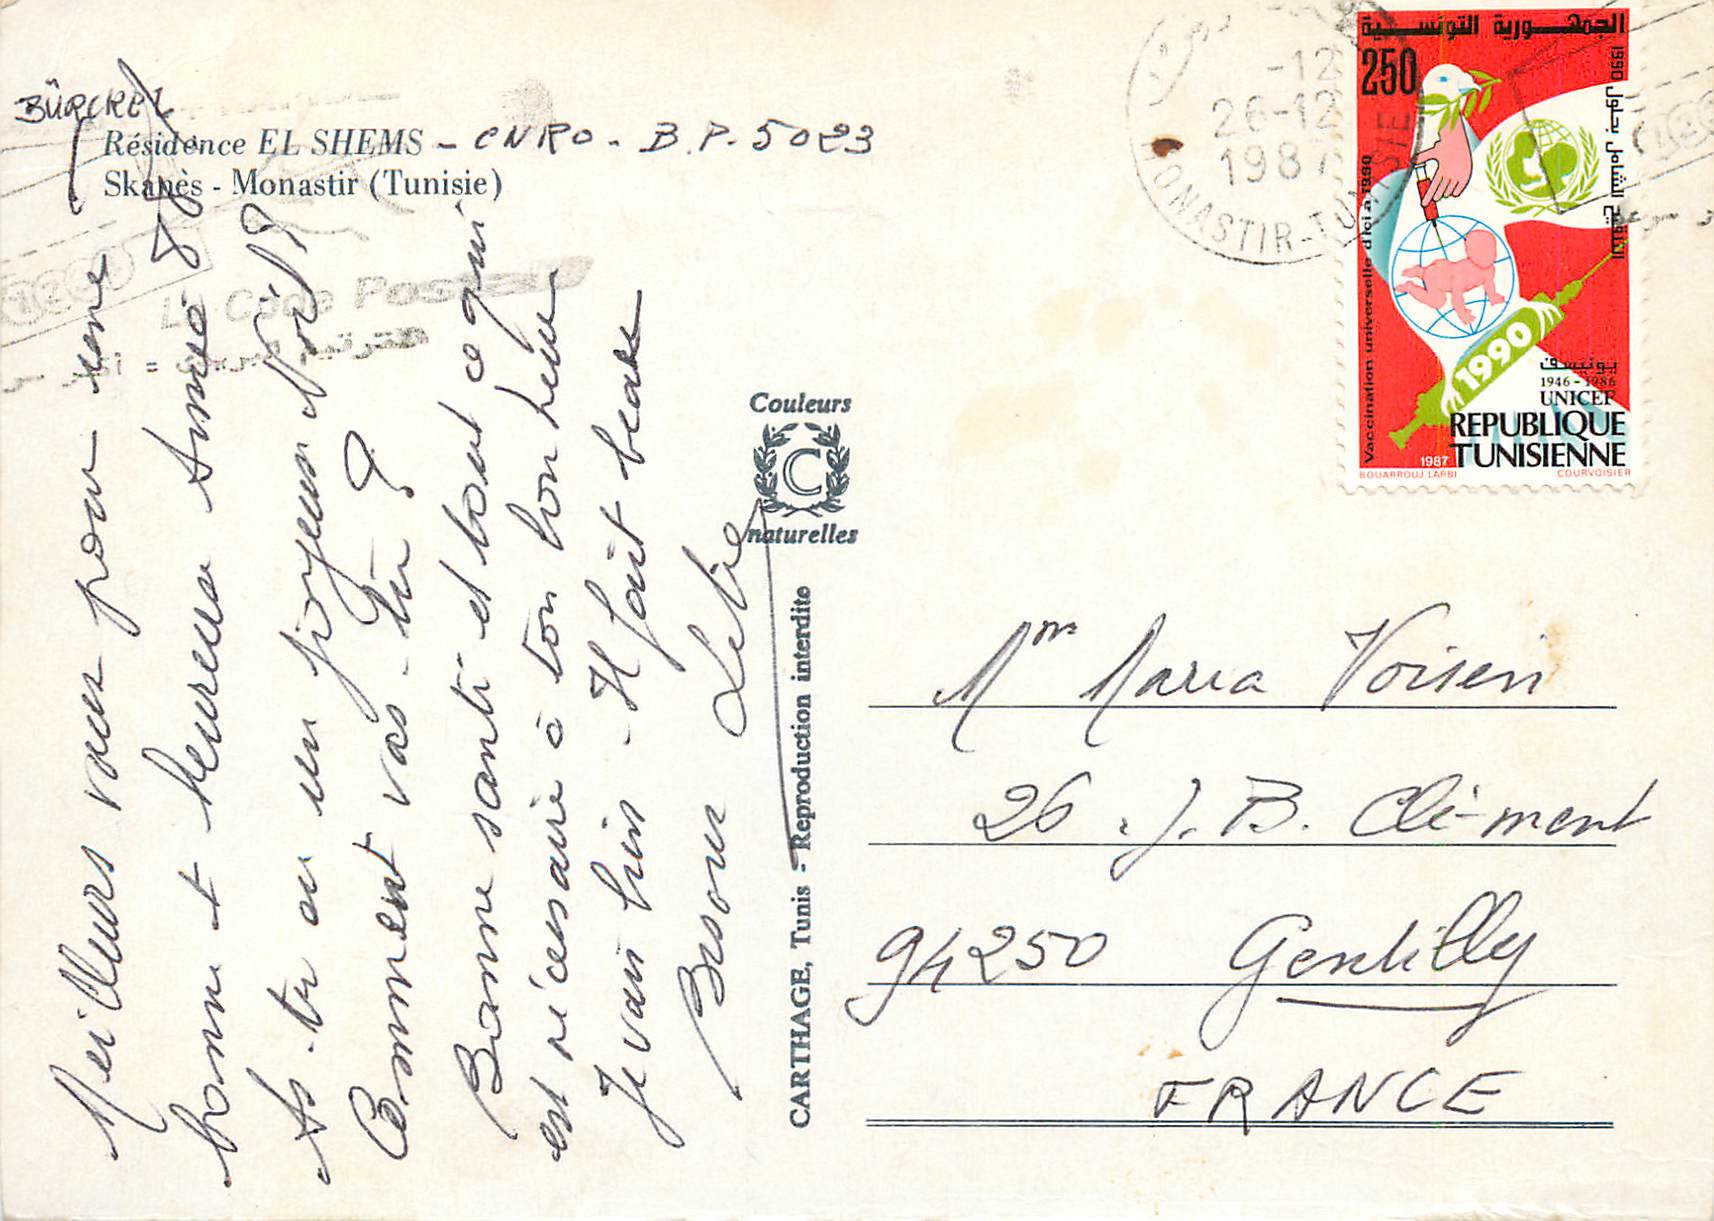 BÛRCKEL
Résidence EL SHEMS - CNRO - B.P. 5023
Skanès - Monastir (Tunisie)
Meilleurs vœux pour une
bonne et heureuse Année 88
As-tu eu un joyeux Noël?
Comment vas-tu?
Bonne santé et tout ce qui
est nécessaire à ton bonheur
Je vais bien - Il fait beau
Couleurs
C
naturelles
CARTHAGE, Tunis - Reproduction interdite
-12
26-12
1987
MONASTIR-TUNISIE
Le Code Postal
الجمهورية التونسية
250
Vaccination universelle d'ici à 1990
التلقيح الشامل بحلول 1990
1990
يونيسف
1946-1986
UNICEF
REPUBLIQUE
TUNISIENNE
1987
BOUARROUJ LARBI
COURVOISIER
Mme Maria Voisin
26 . J. B. Clé-ment
94250 Gentilly
FRANCE